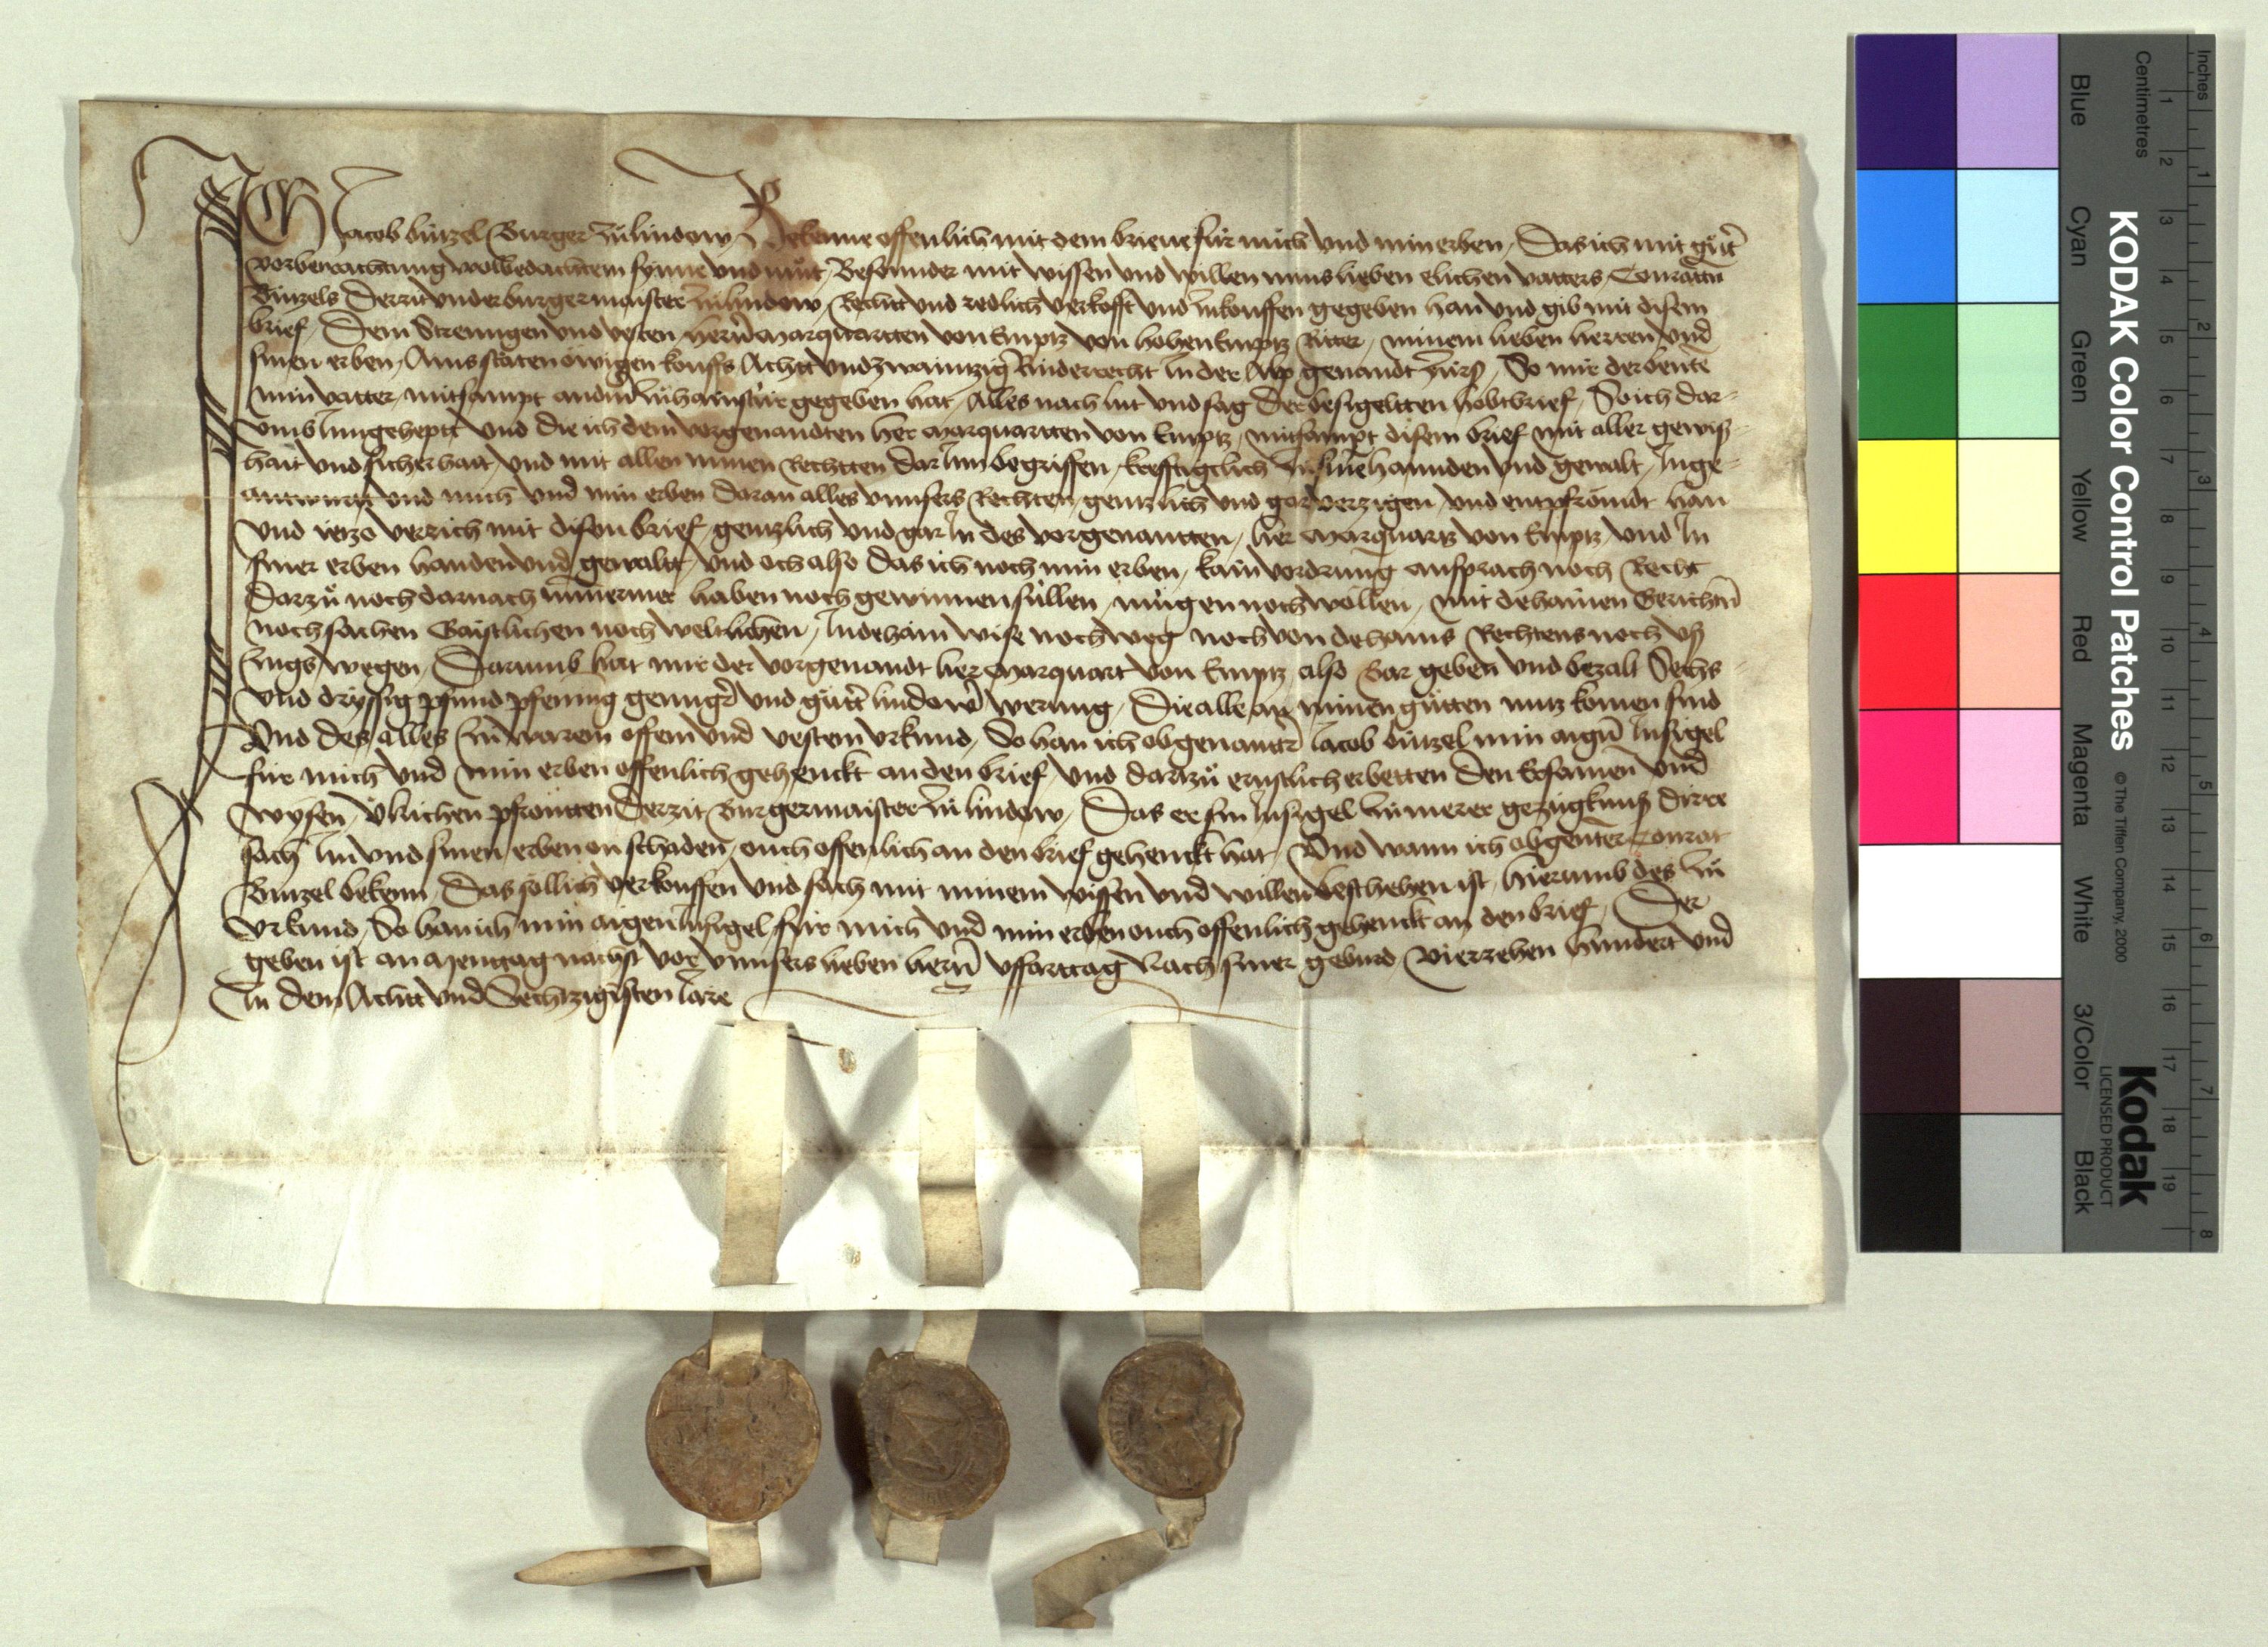 Ich Jacob Bintzel Burger zu lindow Bekenne offenlich mit dem brieue für mich vnd min erben, Das ich mit gůter
vorbetrachtung wolbedachtem synne vnd můt, Besonnder mit wissen vnd willen mins lieben elichen vatters, Conratten
Bintzels Derzit vnderburgermaister zů lindow, Recht vnd redlich verkofft vnd zůkouffen gegeben han vnd gib mit disem
brief, Dem Strenngen vnd vesten hern Marquartten von Emptz von hohen Emptz Ritter, minem lieben herren vnd
sinen erben, Ains stäten ewigen kouffs Achtt vnd zwaintzig Rinderrecht In der Alp genandt zürs, So mir der bente
min vatter, mitsampt andern zů haimstür gegeben hat, Alles nach lut vnd sag Der besigeltten hobtbrief, So ich dar-
vmb Inngeheptt vnd die ich dem vorgenandten her Marquartten von Emptz, mitsampt disem brief mit aller gewiß-
hait vnd sicherhait, vnd mit allen minen Rechtten Dar Inn begriffen, krefftigklich zů sinen hannden vnd gewalt, Inge-
antwurtt vnd mich vnd min erben daran alles vnnsers Rechten, gentzlich vnd gar verzigen, vnd entpfrömdt han
vnd ietzo verzich mit disem brief, gentzlich vnd gar In des vorgenantten, her Marquartz von Emptz, vnd In
siner erben handen vnd gewaltt, vnd och also das ich noch min erben, kain vordrung ansprach noch Recht
Darzů noch darnach nimmermer haben noch gewinnen süllen, mügen noch wöllen, mit dehainen Gerichten
noch sachen Gaistlichen noch weltlichen, In dehain wise noch weg noch von dehains Rechtens noch vß
zugs wegen, Darumb hat mir der vorgenandt her Marquart von Emptz, also Bar geben vnd bezalt Sechs-
vnd dryssig pfund pfening genuger vnd gůter lindower werung, Die alle an minen gůtten nutz komen sind
Vnd des alles zů warem offem vnd vestem vrkund, So han ich obgenanter Jacob Bintzel min aigen Insigel
für mich vnd min erben offenlich gehenckt an den brief vnd dartzů ernstlich erbetten Den Ersamen vnd
wysen, Ůlrichen pfrontten Derzit Burgermaister zů lindow, Das er sin Insigel zů merer gezügknuß dirre
sach Im vnd sinen erben on schaden, ouch offenlich an den brief gehenckt hat, Vnd wann ich obgenter Conrat
Bintzel bekenn, Das söllich verkouffen vnd sach mit minem wissen vnd willen beschehen ist, hierumb des zů
vrkund, So han ich min aigen Insigel, für mich vnd min erben ouch offenlich gehenckt an den brief, Der
geben ist an Mengtag nächst vor vnnsers lieben hern vffarttag Nach siner geburd vierzehen hundert vnd
In dem Achtt vnd Sechtzigisten Jare
KODAK Color Control Patches
© The Tiffen Company, 2000
Kodak
LICENSED PRODUCT
Blue Cyan Green Yellow Red Magenta White 3/Color Black
Inches 1 2 3 4 5 6 7 8
Centimetres 1 2 3 4 5 6 7 8 9 10 11 12 13 14 15 16 17 18 19